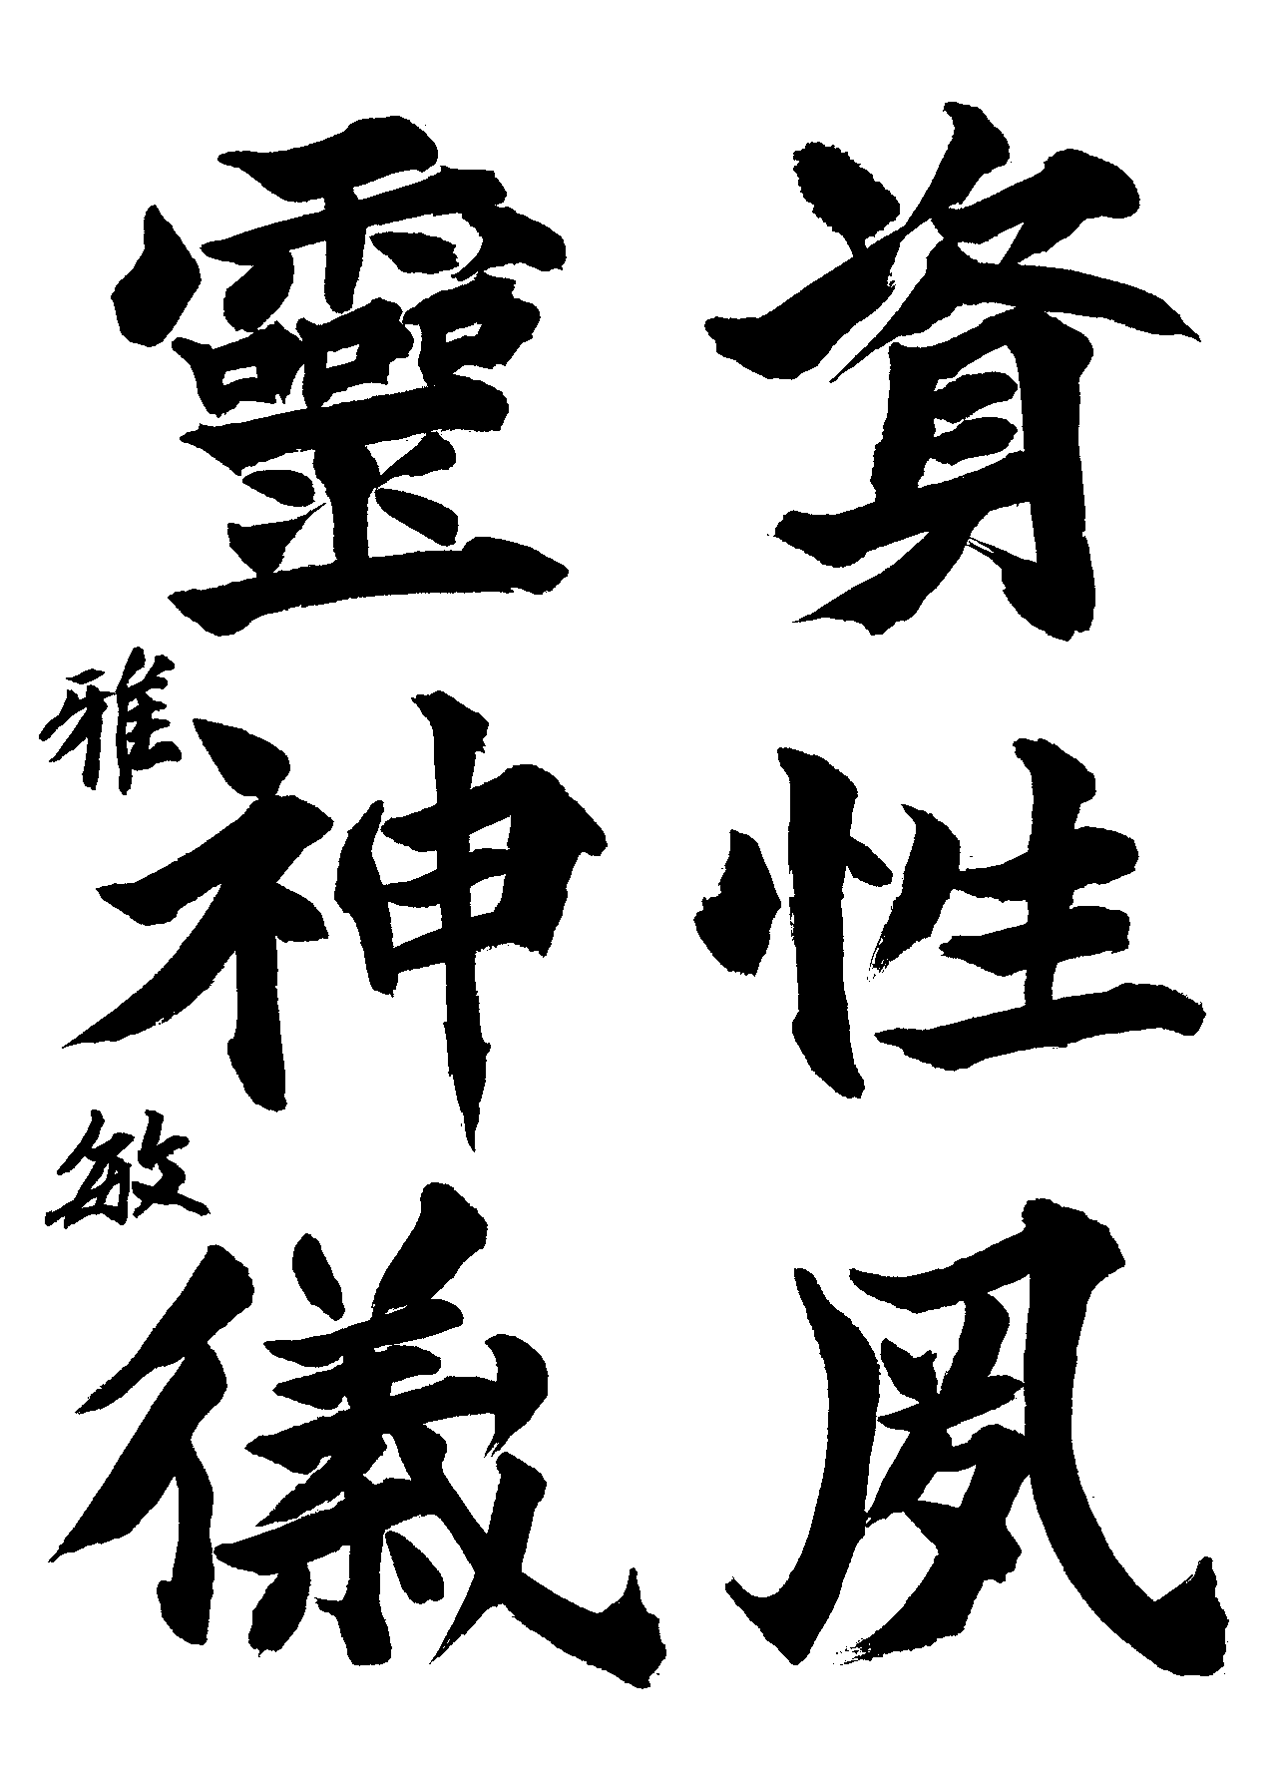 資性夙
靈神儀
雅敏